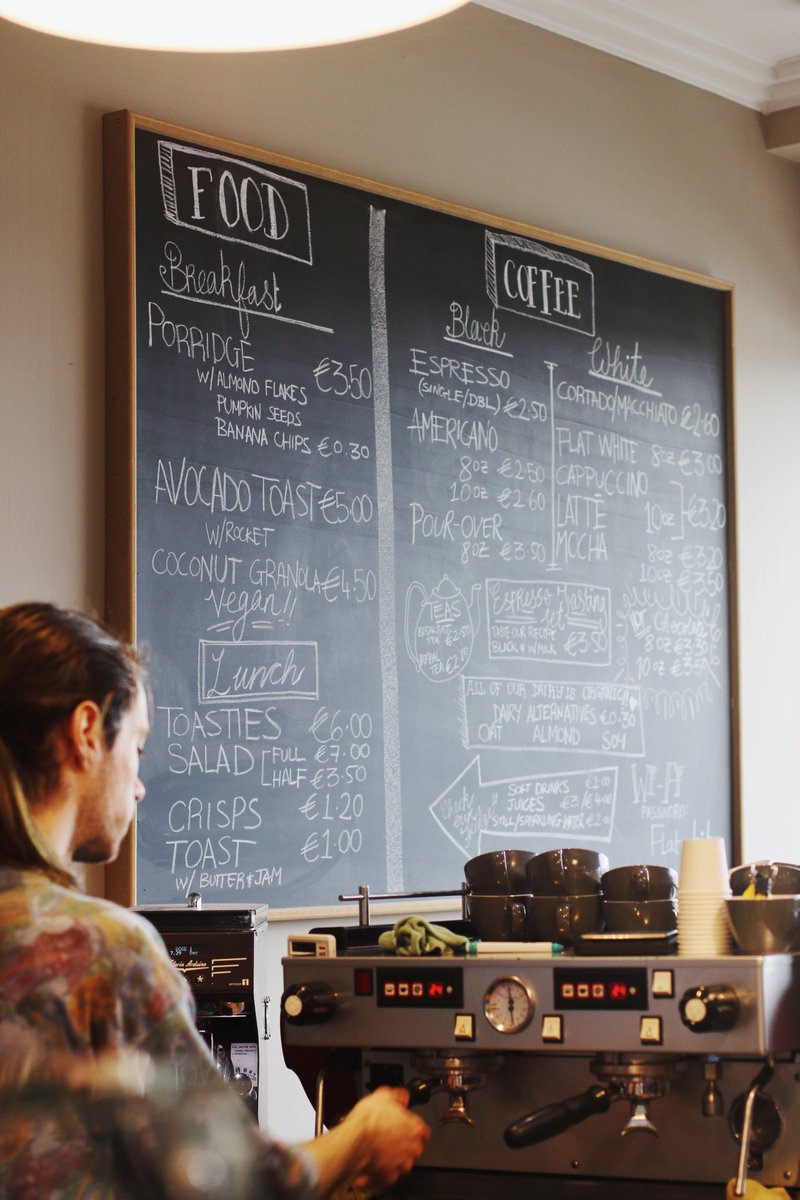 FOOD
Breakfast
PORRIDGE €3.50
W/ ALMOND FLAKES
PUMPKIN SEEDS
BANANA CHIPS €0.30
AVOCADO TOAST €5.00
W/ROCKET
COCONUT GRANOLA €4.50
Vegan!!
Lunch
TOASTIES €6.00
SALAD [FULL €7.00
HALF €3.50
CRISPS €1.20
TOAST €1.00
W/ BUTTER & JAM
COFFEE
Black
ESPRESSO
(SINGLE/DBL) €2.50
AMERICANO
8oz €2.50
10oz €2.60
POUR-OVER
8oz €3.50
White
CORTADO/MACCHIATO €2.60
FLAT WHITE 8oz €3.00
CAPPUCCINO
LATTE 10oz €3.20
MOCHA 8oz €3.20
10oz €3.50
TEAS
BREAKFAST
TEA €2.50
HERBAL
TEA
Espresso Tasting
Set
TASTE OUR RECIPE
BLACK & W/ MILK €3.50
HOT Chocolate
8oz €3.30
10oz €3.50
ALL OF OUR DAIRY IS ORGANIC
DAIRY ALTERNATIVES €0.30
OAT ALMOND SOY
SOFT DRINKS
JUICES €3/€4.00
STILL/SPARKLING WATER €2.00
Wi-Fi
PASSWORD: